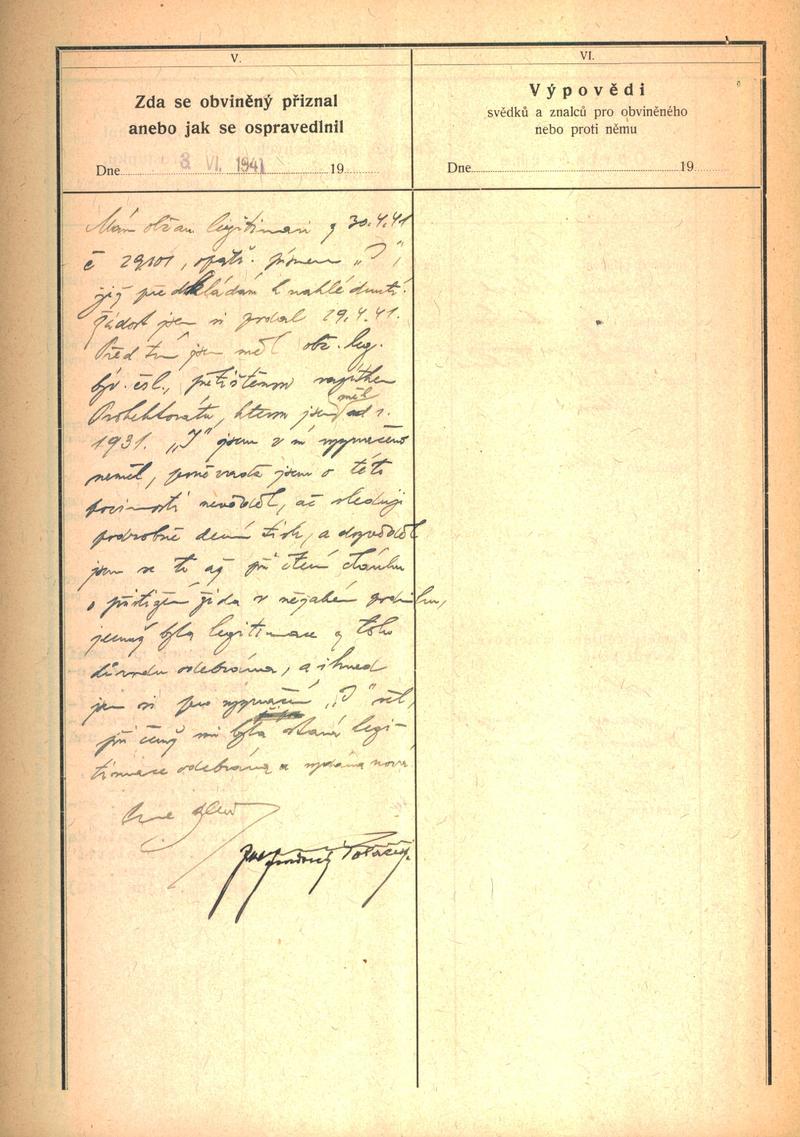 V.
Zda se obviněný přiznal
anebo jak se ospravedlnil
Dne 3 VI. 1941 19
VI.
Výpovědi
svědků a znalců pro obviněného
nebo proti němu
Dne 19
Mám občan. legitimaci z 30.4.41
č 29101, opatř. písmem „J",
jíž předkládám k nahlédnutí.
Žádost jsem si podal 29.4.41.
Před tím jsem měl obč. leg.
býv. čsl., přetištěnou razítkem
Protektorátu, kterou jsem měl od r.
1931. „J" jsem v ní vyznačeno
neměl, poněvadž jsem o této
povinnosti nevěděl, ač sleduji
podrobně denní tisk, a dozvěděl
jsem se to až při čtení článku
o přistižení žida v nějakém podniku,
jemuž byla legitimace z toho
důvodu odebrána, a ihned
jsem si pro vyznačení „J" šel,
při čemž mi byla stará legi-
timace odebrána a vydána nová